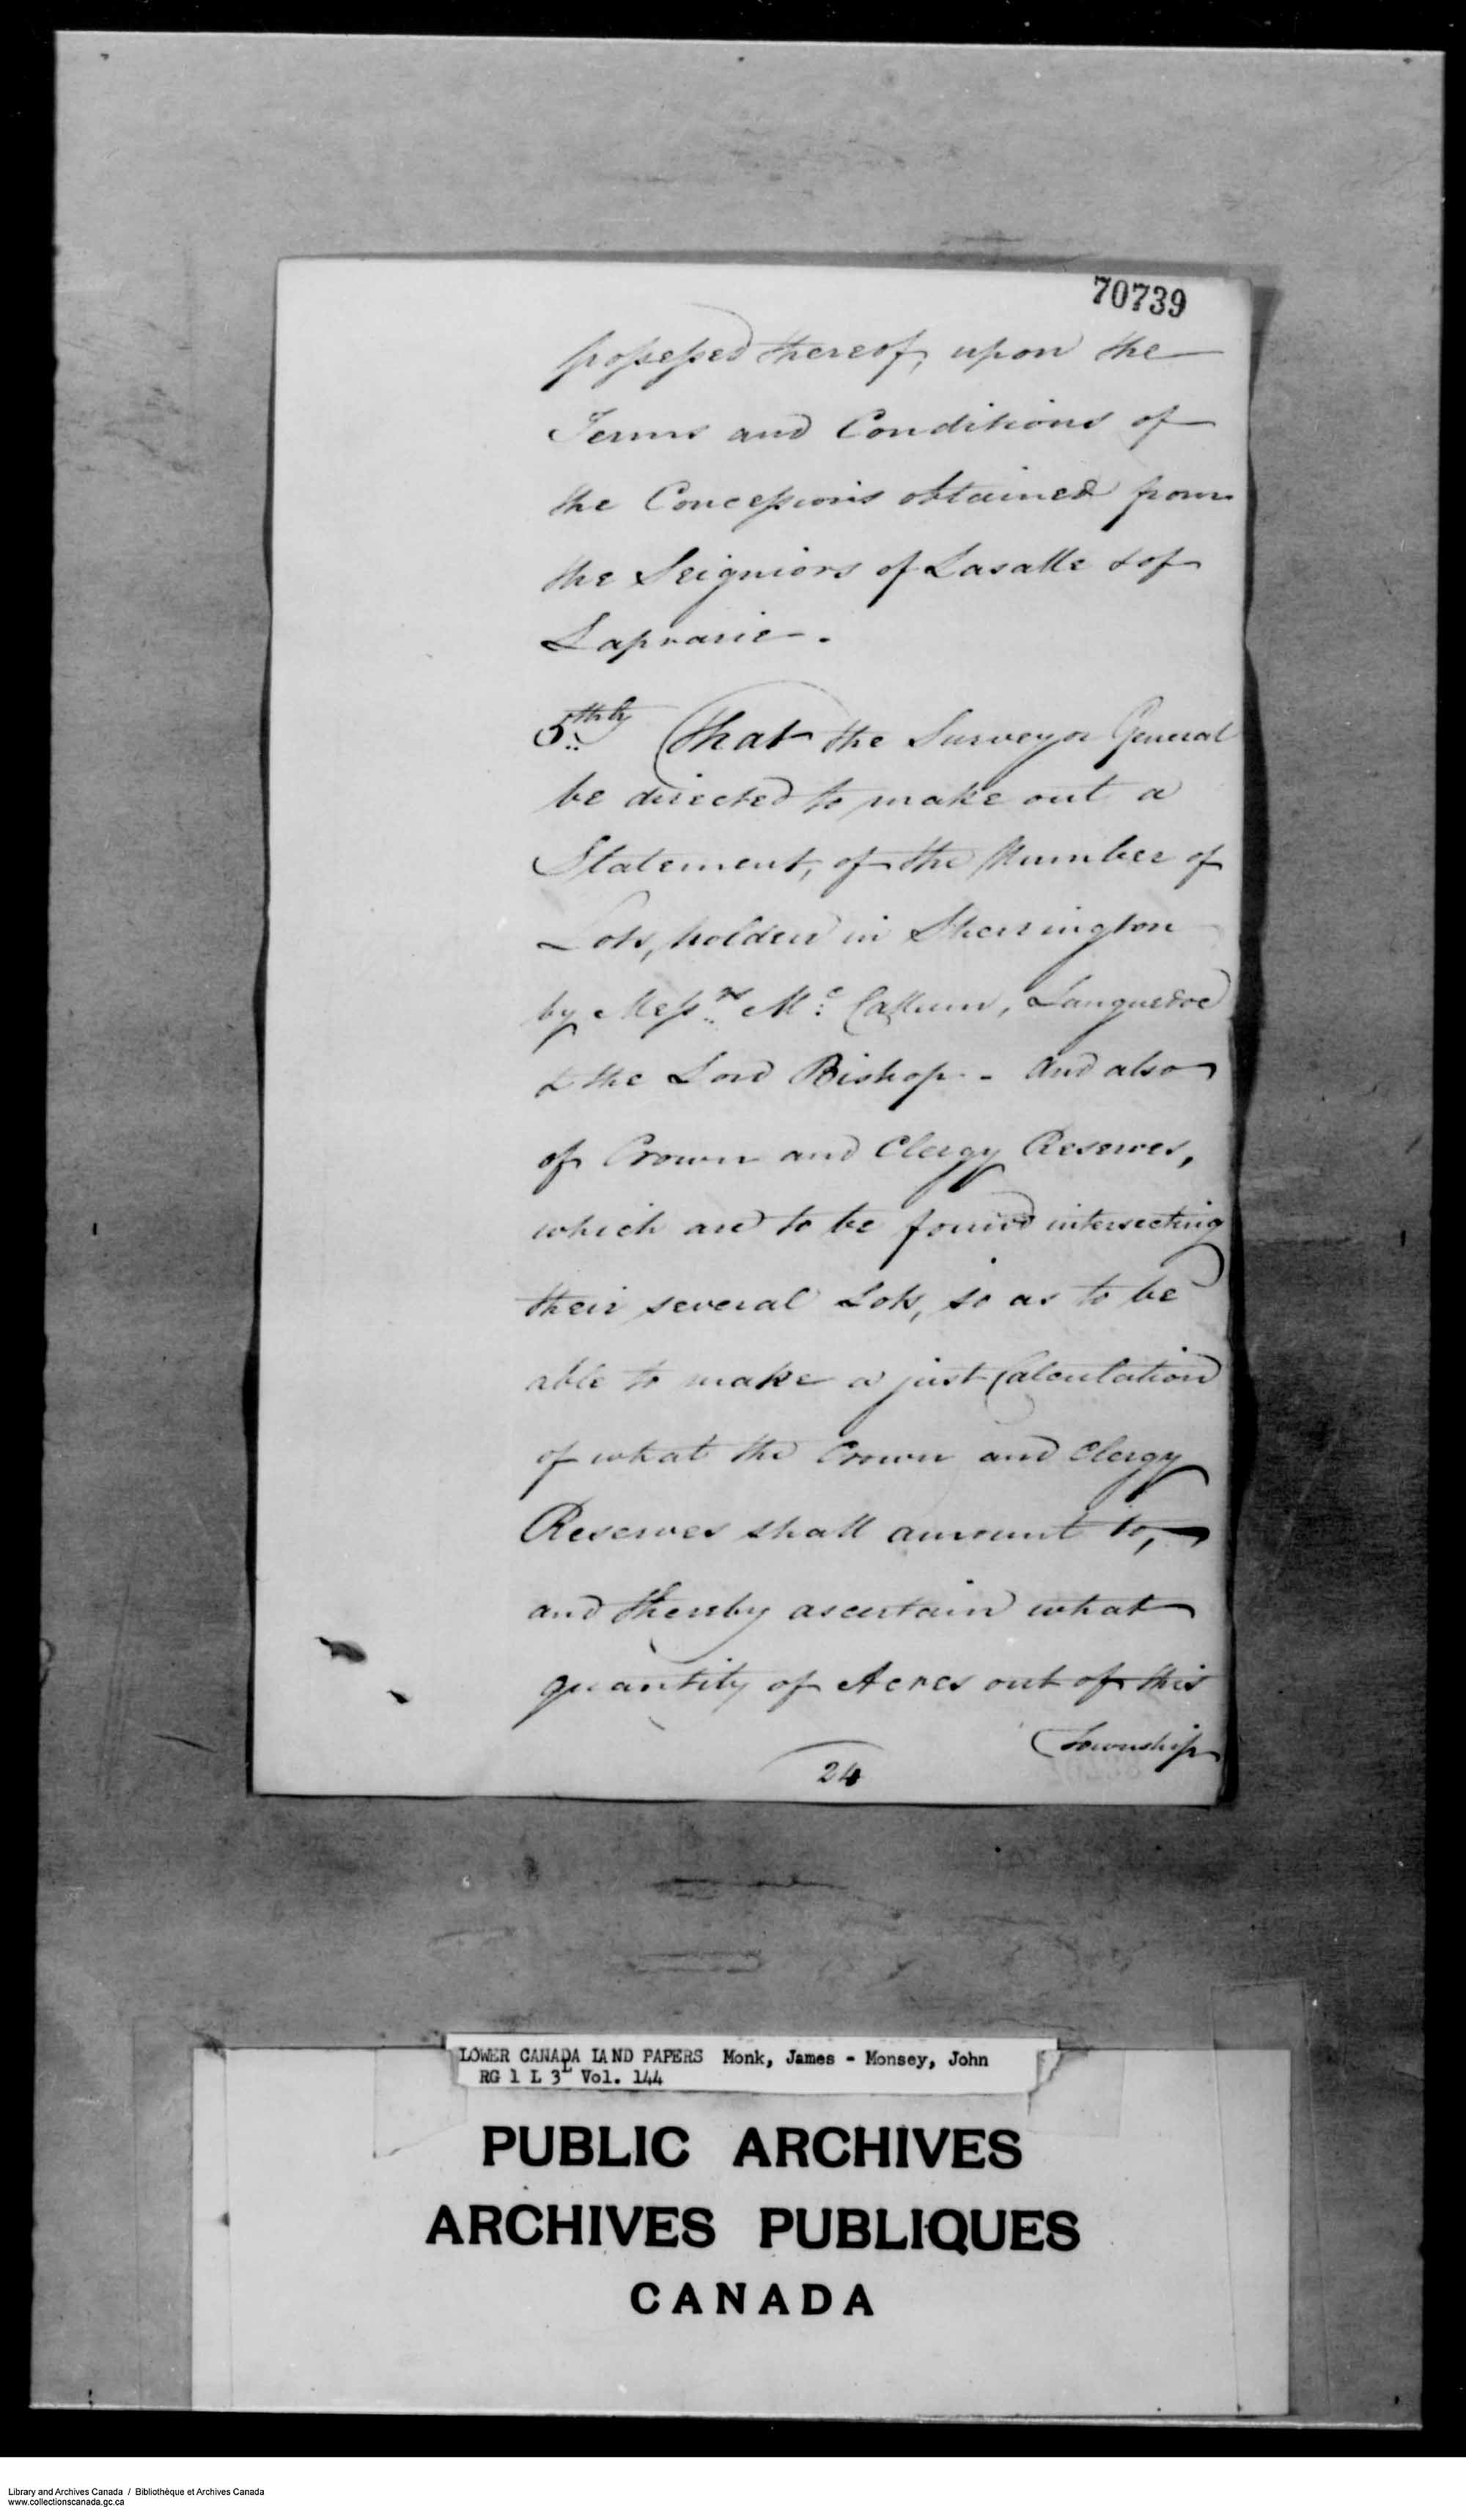 70739
possessed thereof, upon the
Terms and Conditions of
the Concessions obtained from
the Seigniors of Lasalle & of
Laprarie.
5thly That the Surveyor General
be directed to make out a
Statement, of the Number of
Lots, holden in Sherrington
by Messrs Mc Callum, Languedoc
& the Lord Bishop - And also
of Crown and Clergy Reserves,
which are to be found intersecting
their several Lots, so as to be
able to make a just Calculation
of what the Crown and Clergy
Reserves shall amount to,
and thereby ascertain what
quantity of Acres out of this
Township
24
LOWER CANADA LAND PAPERS Monk, James - Monsey, John
RG 1 L 3L Vol. 144
PUBLIC ARCHIVES
ARCHIVES PUBLIQUES
CANADA
Library and Archives Canada / Bibliothèque et Archives Canada
www.collectionscanada.gc.ca